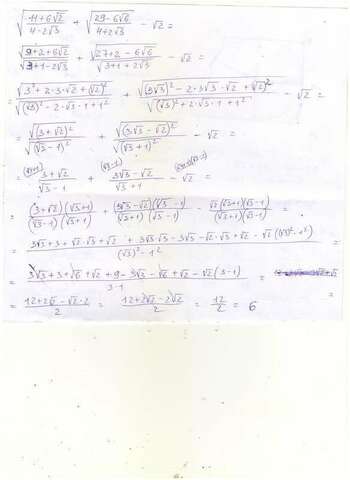 √(11+6√2)/(4-2√3) + √(29-6√6)/(4+2√3) - √2 =
√(9+2+6√2)/√(3+1-2√3) + √(27+2-6√6)/√(3+1+2√3) - √2 =
= √(3²+2·3·√2+(√2)²)/√((√3)²-2·√3·1+1²) + √((3√3)²-2·3√3·√2+√2)²/√((√3)²+2·√3·1+1²) - √2 =
= √(3+√2)²/√(√3-1)² + √(3√3-√2)²/√(√3+1)² - √2 =
= (3+√2)/(√3-1) + (3√3-√2)/(√3+1) - √2 =
= (3+√2)(√3+1)/(√3-1)(√3+1) + (3√3-√2)(√3-1)/(√3+1)(√3-1) - √2(√3+1)(√3-1)/(√3+1)(√3-1) =
= (3√3+3+√2·√3+√2+3√3·√3-3√3-√2·√3+√2-√2((√3)²-1²))/((√3)²-1²) =
= (3√3+3+√6+√2+9-3√3-√6+√2-√2(3-1))/(3-1) =
= (12+2√2-√2·2)/2 = (12+2√2-2√2)/2 = 12/2 = 6